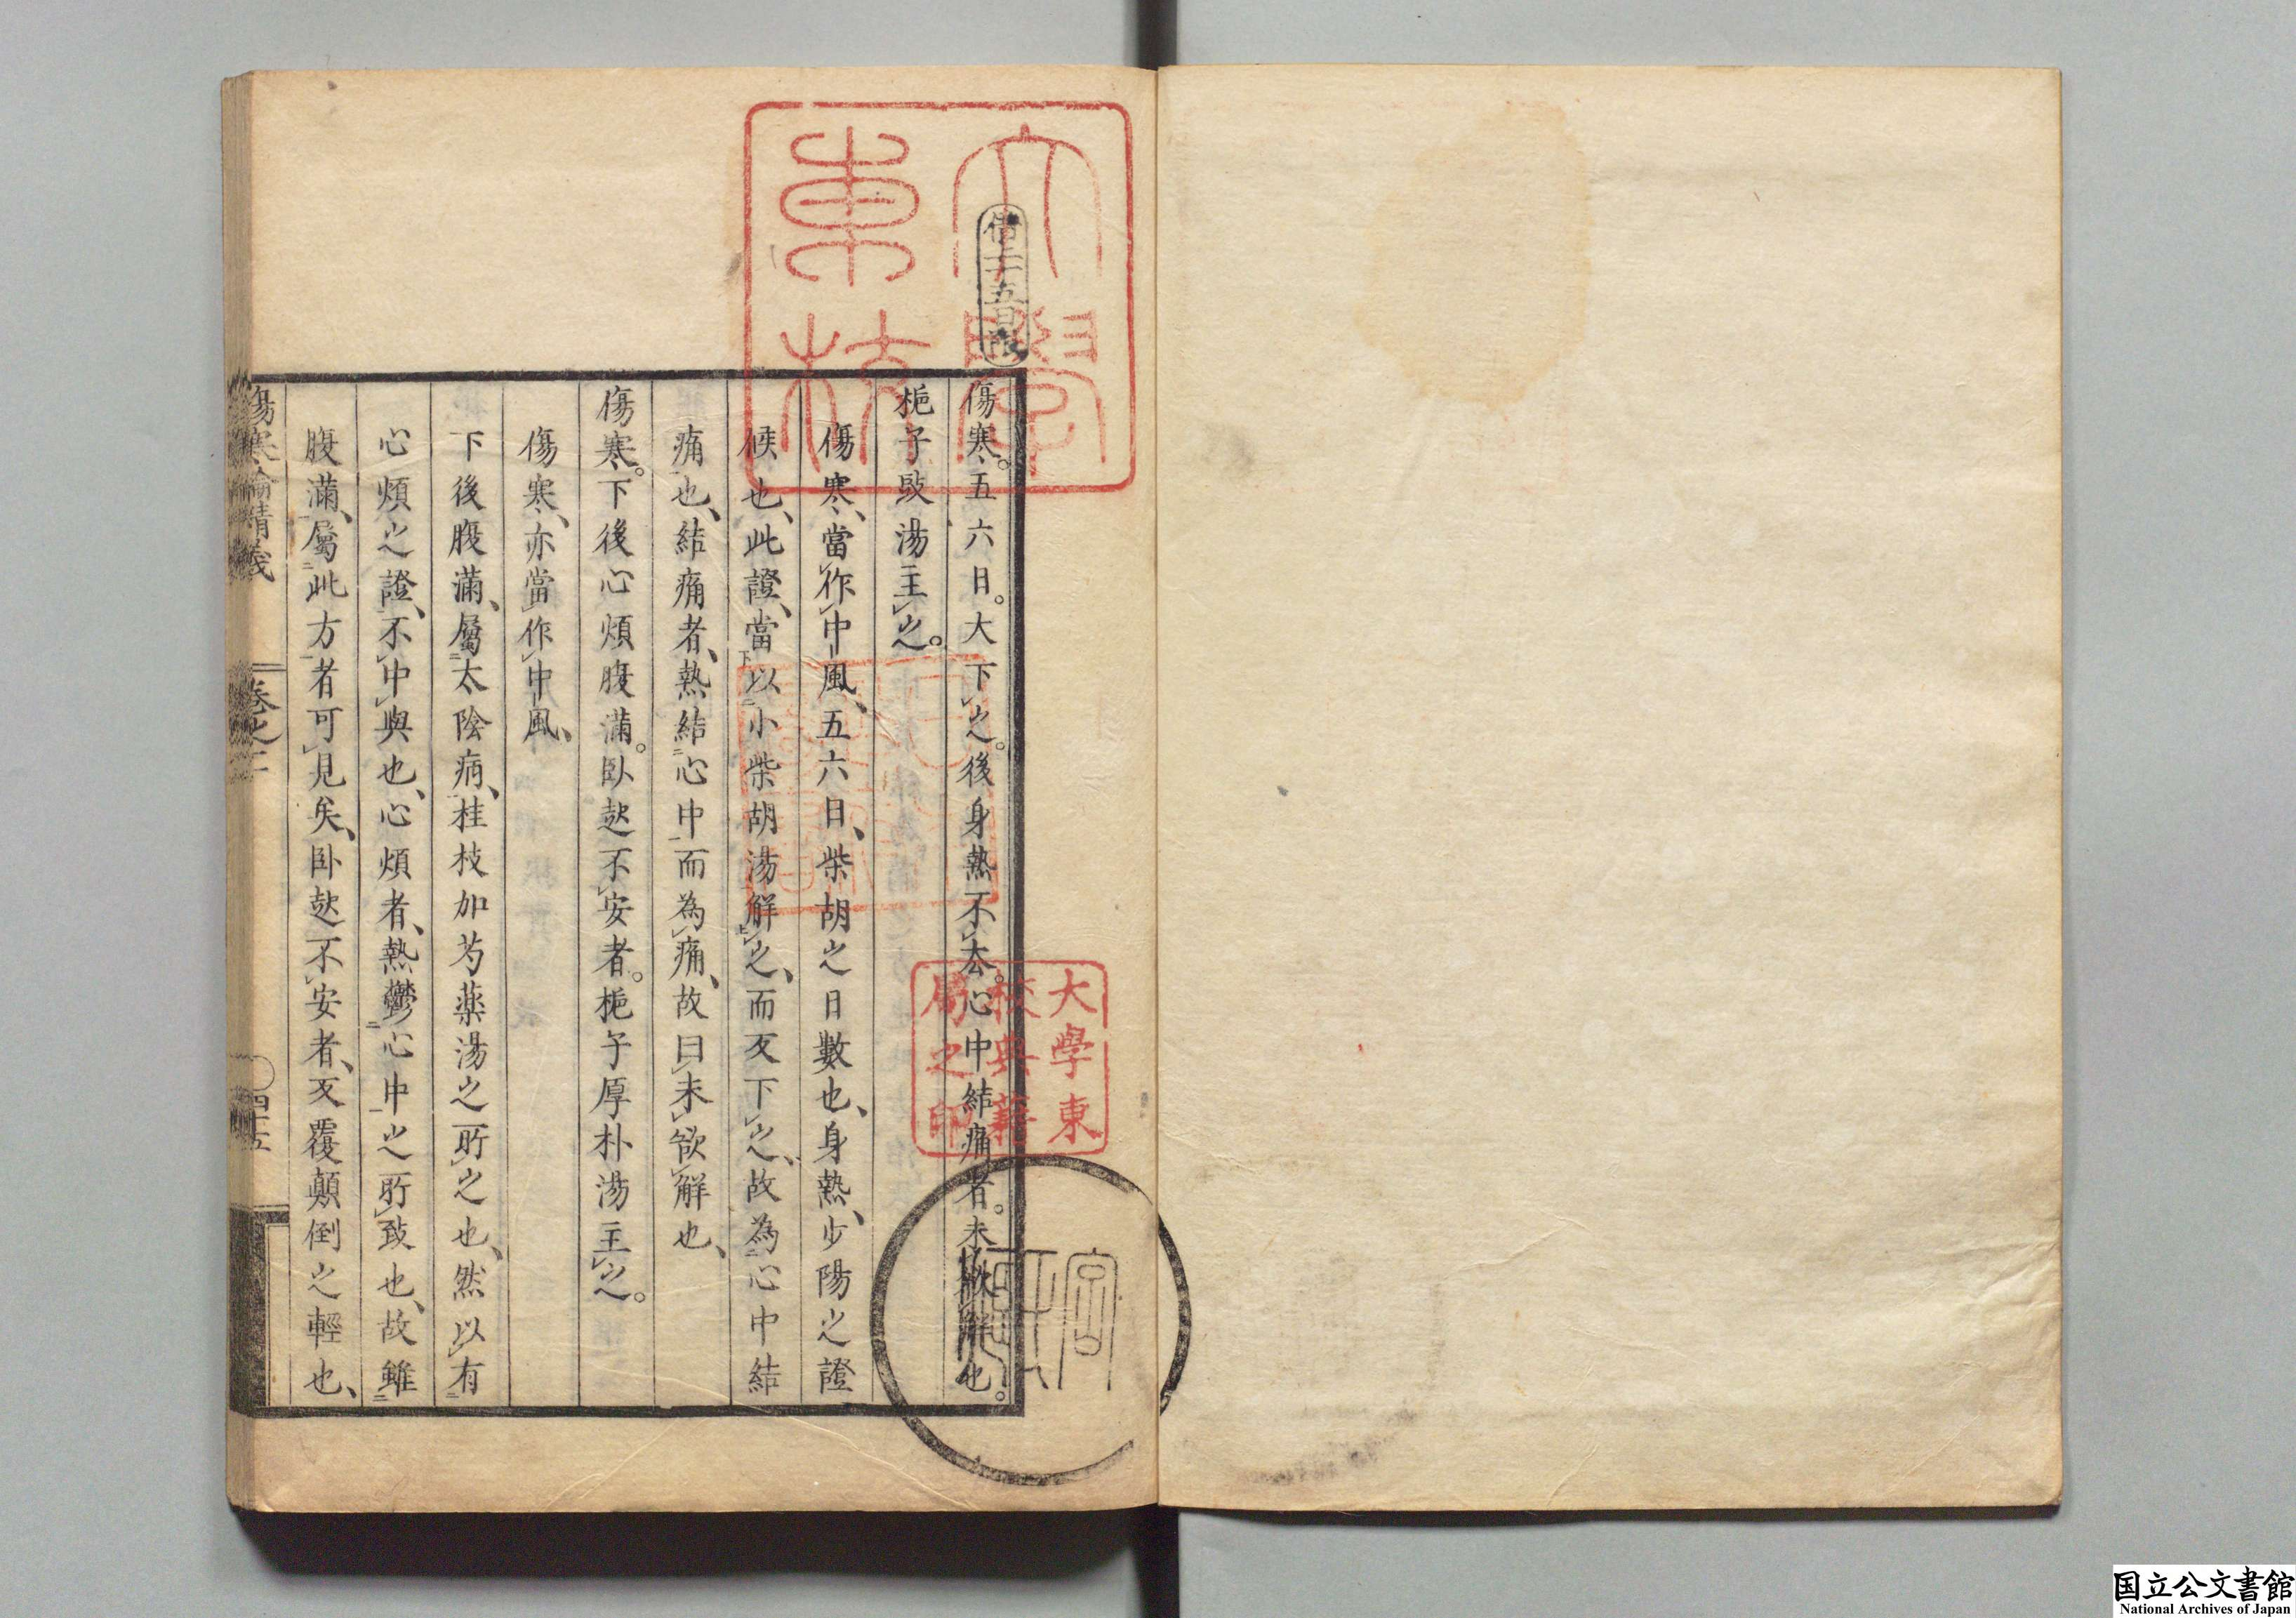 傷寒。五六日。大下之。後身熱不去。心中結痛者。未欲解也。
梔子豉湯主之。
傷寒、當作中風、五六日、柴胡之日數也、身熱、少陽之證
候也、此證、當以小柴胡湯解之、而反下之、故為心中結
痛也、結痛者、熱結心中而為痛、故曰未欲解也、
傷寒。下後心煩腹滿。臥起不安者。梔子厚朴湯主之。
傷寒、亦當作中風、
下後腹滿、屬太陰病、桂枝加芍藥湯之所之也、然以有
心煩之證、不中與也、心煩者、熱鬱心中之所致也、故雖
腹滿、屬此方者可見矣、臥起不安者、反覆顛倒之輕也、
傷寒論精義
卷之二
四十五
大學東
校典籍
局之印
大學
東校
国立公文書館
National Archives of Japan